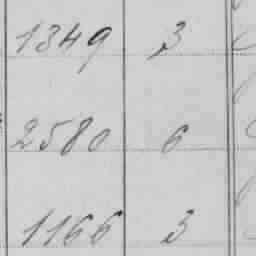 1349 3
2580 6
1166 3